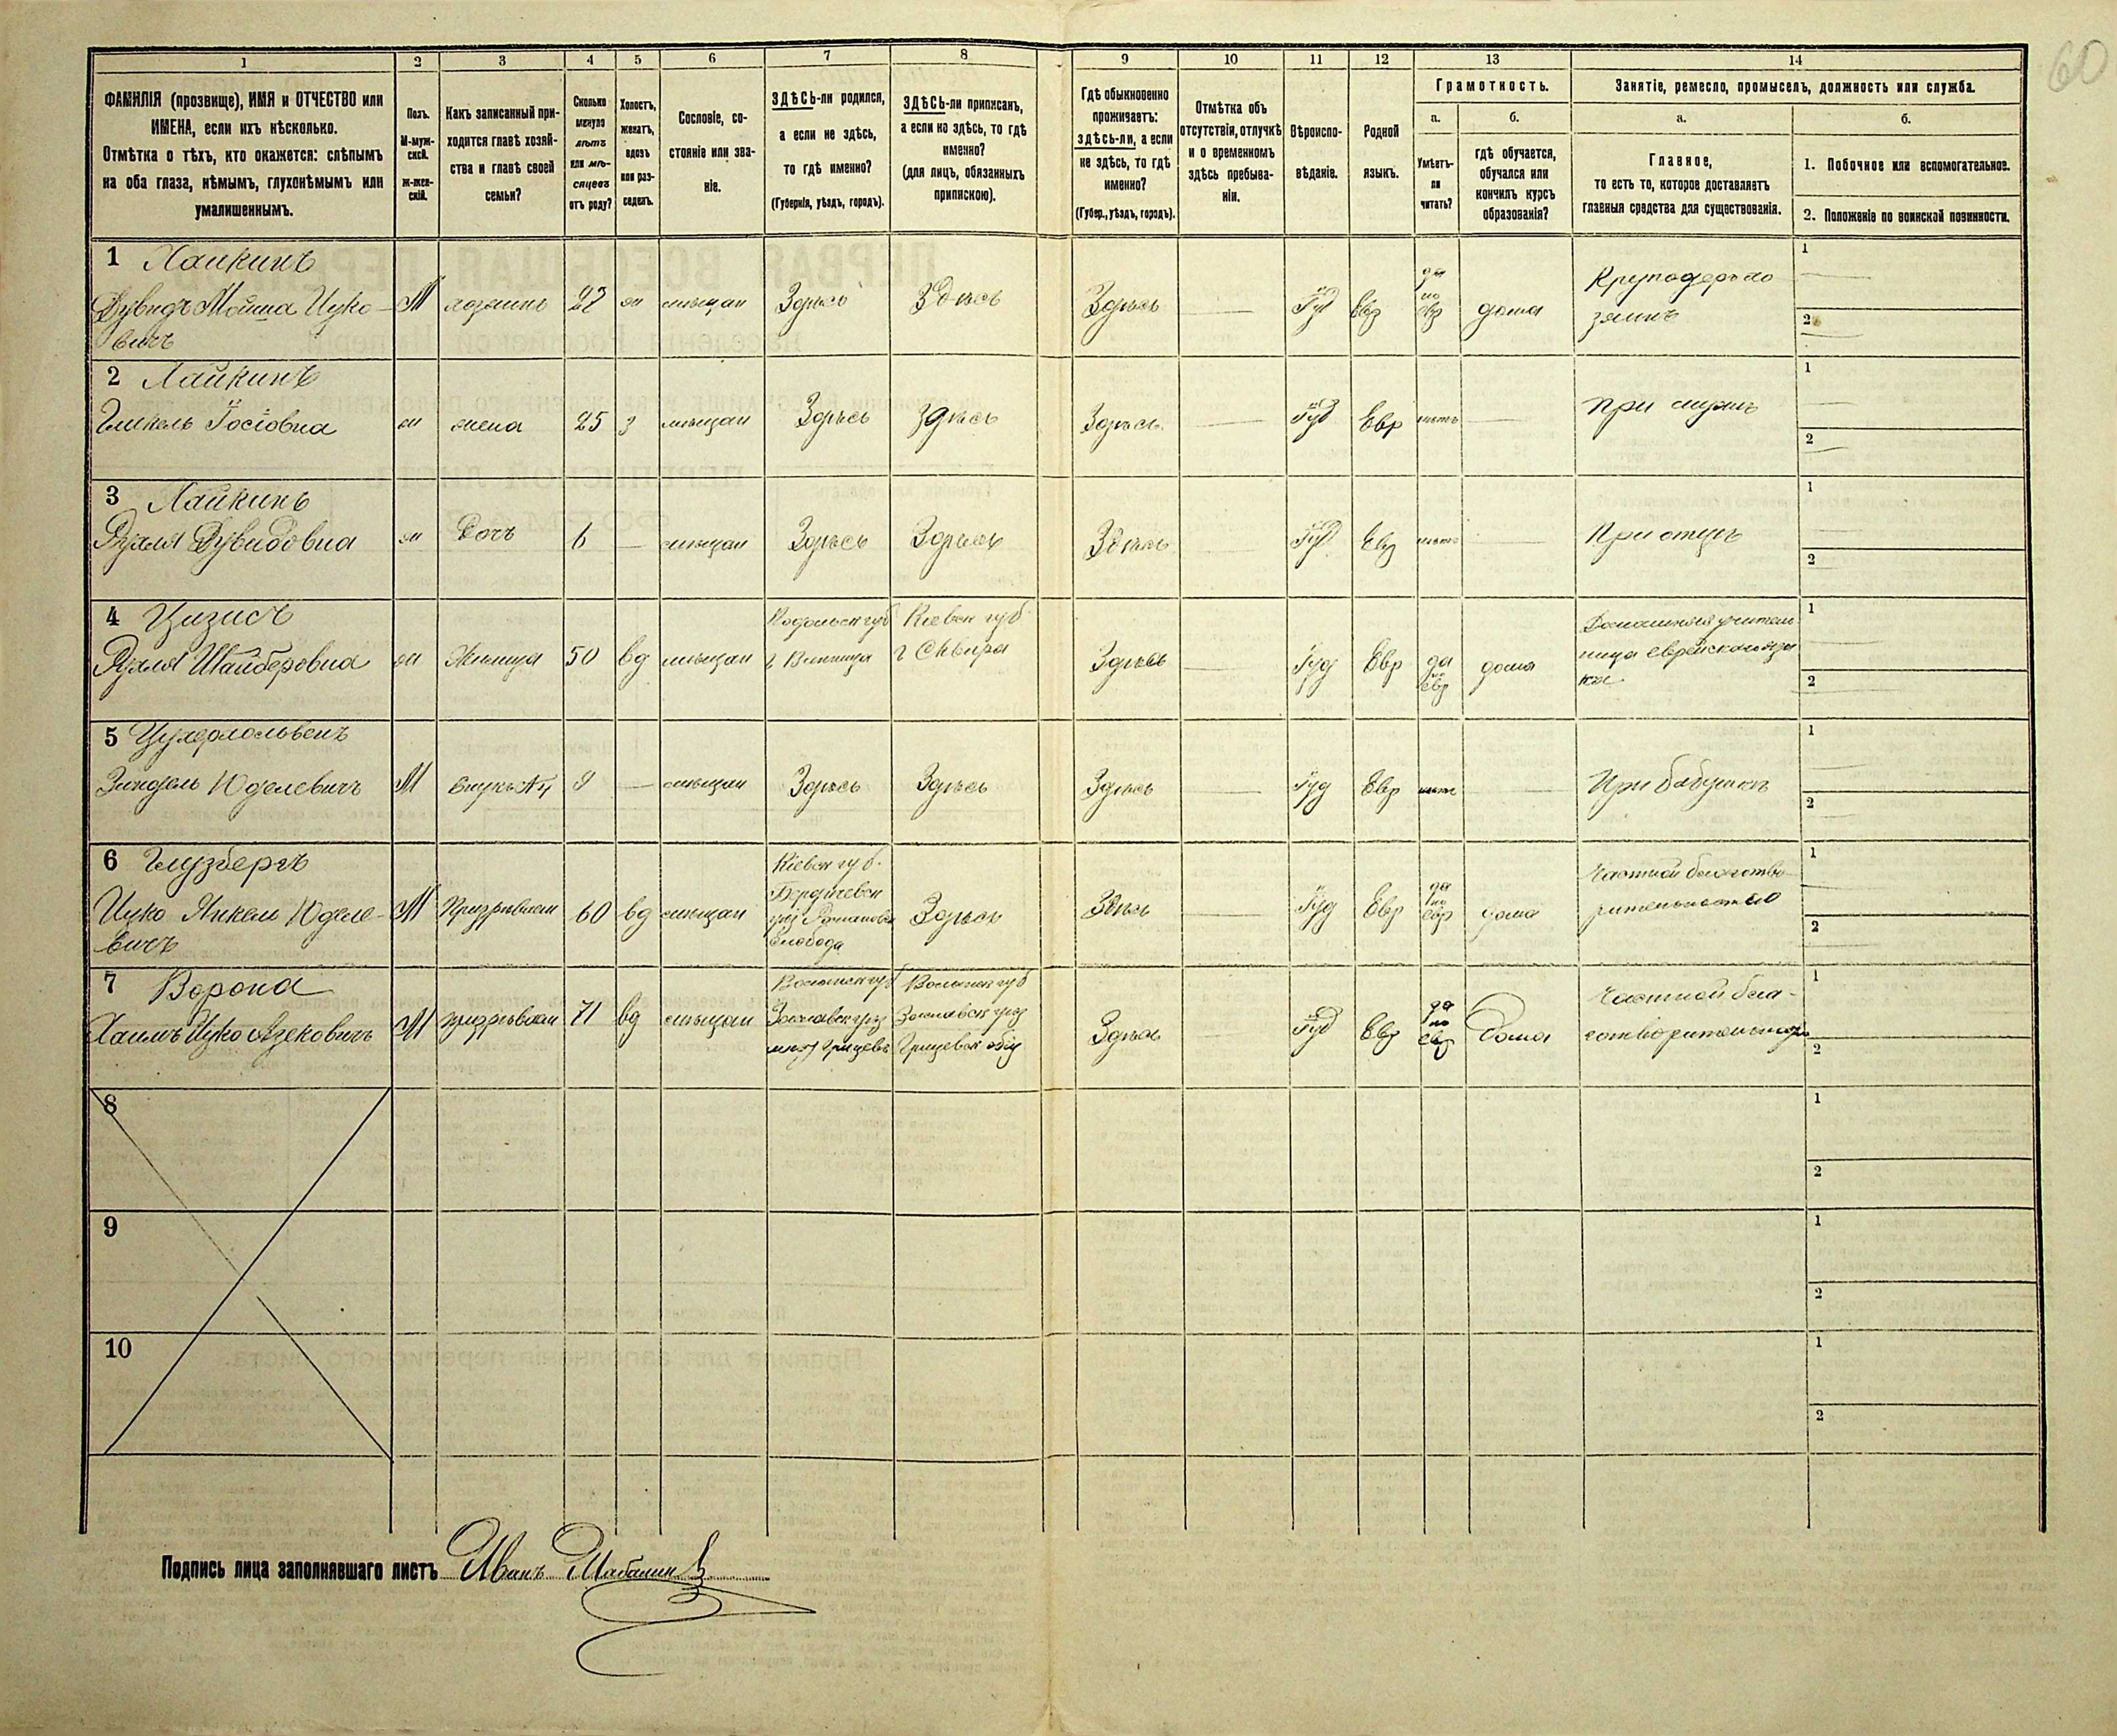 60
1 2 3 4 5 6 7 8 9 10 11 12 13 14
ФАМИЛІЯ (прозвище), ИМЯ и ОТЧЕСТВО или
ИМЕНА, если ихъ нѣсколько.
Отмѣтка о тѣхъ, кто окажется: слѣпымъ
на оба глаза, нѣмымъ, глухонѣмымъ или
умалишеннымъ.
Полъ.
М-муж-
ской.
Ж-жен-
скій.
Какъ записанный при-
ходится главѣ хозяй-
ства и главѣ своей
семьи?
Сколько
минуло
лѣтъ
или мѣ-
сяцевъ
отъ роду?
Холостъ,
женатъ,
вдовъ
или раз-
веденъ.
Сословіе, со-
стояніе или зва-
ніе.
ЗДѢСЬ-ли родился,
а если не здѣсь,
то гдѣ именно?
(Губернія, уѣздъ, городъ).
ЗДѢСЬ-ли приписанъ,
а если не здѣсь, то гдѣ
именно?
(для лицъ, обязанныхъ
припискою).
Гдѣ обыкновенно
проживаетъ:
здѣсь-ли, а если
не здѣсь, то гдѣ
именно?
(Губер., уѣздъ, городъ).
Отмѣтка объ
отсутствіи, отлучкѣ
и о временномъ
здѣсь пребыва-
ніи.
Вѣроиспо-
вѣданіе.
Родной
языкъ.
Грамотность.
а.
Умѣетъ-
ли
читать?
б.
гдѣ обучается,
обучался или
кончилъ курсъ
образованія?
Занятіе, ремесло, промыселъ, должность или служба.
а.
Главное,
то есть то, которое доставляетъ
главныя средства для существованія.
б.
1. Побочное или вспомогательное.
2. Положеніе по воинской повинности.
1 Хайкинъ
Дувидъ Мойша Ицко-
вичъ
М хозяинъ 27 мѣщан Здѣсь Здѣсь Здѣсь Іуд Евр
да
по
евр
дома
1
2
2 Хайкинъ
Гликель Іосіовна
ж жена 25 з мѣщан Здѣсь Здѣсь Здѣсь Іуд Евр нѣтъ
при мужѣ
1
2
3 Хайкинъ
Рухля Дувидовна
ж Дочь 6 — мѣщан Здѣсь Здѣсь Здѣсь Іуд Евр нѣтъ
При отцѣ
1
2
4 Цизисъ
Рухля Шайберовна
ж Жилица 50 вд мѣщан
Подольск губ
г. Винница
Кіевск губ
г Сквира
Здѣсь Іуд Евр
да
по
евр
дома
Домашняя учитель
ница еврейскаго язы
ка
1
2
5
Зиндель Юделевичъ
М внукъ №4 9 — мѣщан Здѣсь Здѣсь Здѣсь Іуд Евр нѣтъ
При бабушкѣ
1
2
6 Глузбергъ
Ицко Янкель Юделе-
вичъ
М Призрѣваем 60 вд мѣщан
Кіевск губ.
Бердичевск
уѣз Романовк
Слобода
Здѣсь Здѣсь Іуд Евр
да
по
евр
дома
Частной благотво
рительностью
1
2
7 Ворона
Хаимъ Ицко Азековичъ
М призрѣваем 71 вд мѣщан
Волынск губ
Заславск уѣз
мѣст Грицевъ
Волынск губ
Заславск уѣз
Грицевск общ
Здѣсь Іуд Евр
да
по
евр
Дома
Частной бла-
готворительност
1
2
8
1
2
9
1
2
10
1
2
Подпись лица заполнявшаго листъ Иванъ Шабалинъ